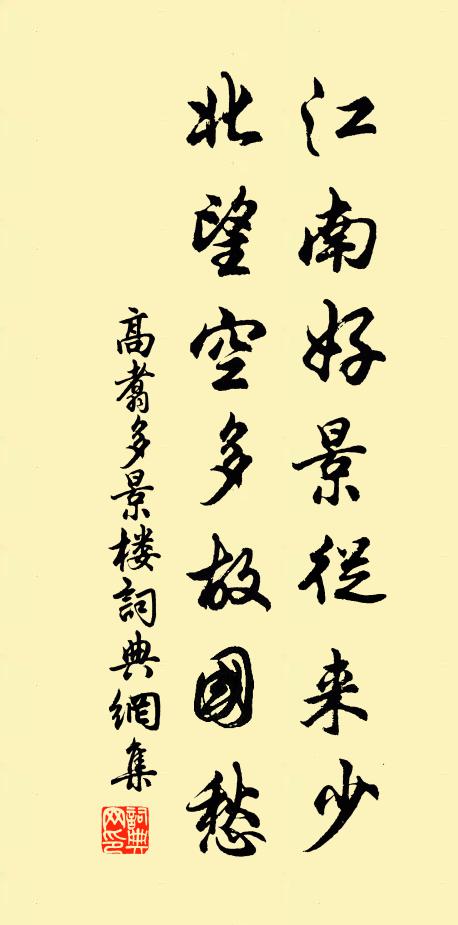 江南好景從来少
北望空多故國愁
高翥多景楼詞典網集
詞典网印